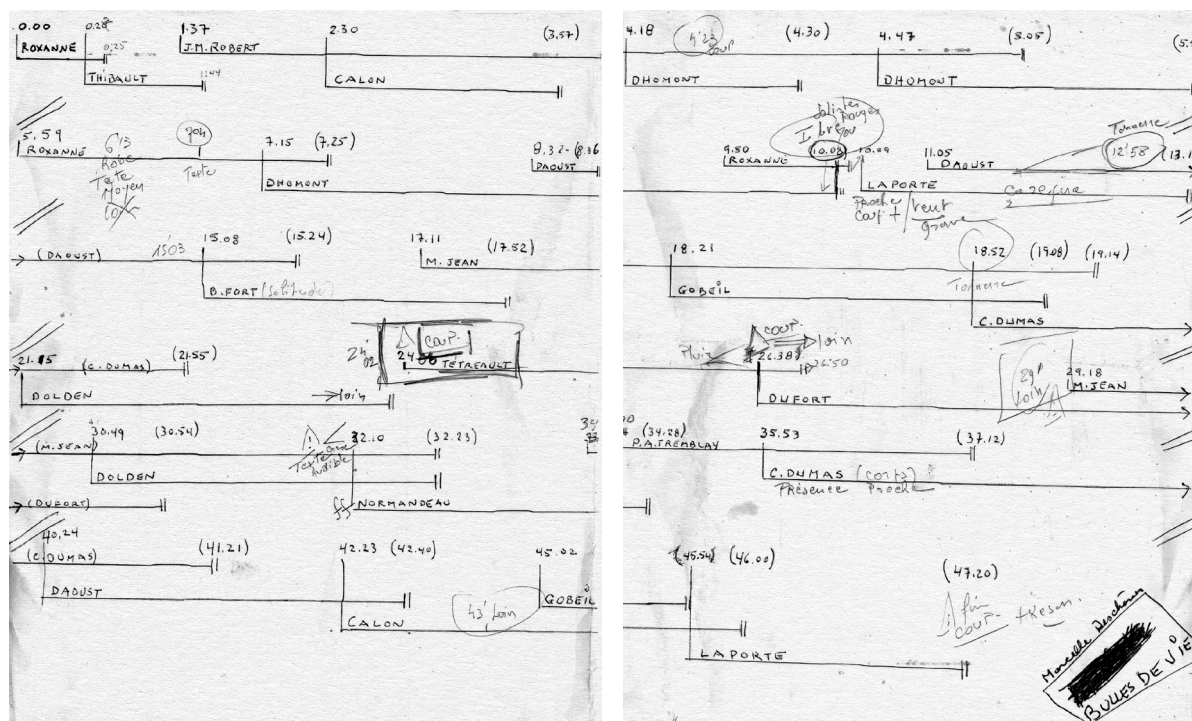 0.00 0.28" 1.37 2.30 (3.57)
ROXANNE 0:25 J.M. ROBERT
THIBAULT 1:44 CALON
5.59 7.15 (7.25) 8.32- (8.36
ROXANNE 6'13 DAOUST
Robe Texte DHOMONT
Texte
Moyen
(DAOUST) 15'03 15.08 (15.24) 17.11 (17.52)
M. JEAN
B. FORT (Solitude)
24'02 COUP.
21.15 (C. DUMAS) (21.55) TÉTREAULT
DOLDEN → loin
(M. JEAN) 30.49 (30.54) 32.10 (32.23)
Texte
Audible
DOLDEN
(DUFORT) ff NORMANDEAU
40.24
(C. DUMAS) (41.21) 42.23 (42.40) 45.02
DAOUST GOBEIL
CALON 43' loin
4.18 4'23 COUP (4.30) 4.47 (5.05)
DHOMONT DHOMONT
Rouges
9.50 10.08 10.09 11.05 Tonnerre 12'58
ROXANNE DAOUST
LAPORTE
Proche
Coup + / vent
grave
18.21 18.52 (19.08) (19.14)
GOBEIL Tonnerre
C. DUMAS
COUP. loin
Pluie 26.38 26'50
DUFORT 29' loin 29.18
M. JEAN
(34.28) 35.53 (37.12)
P.A. TREMBLAY
C. DUMAS (CORPS)
Présence Proche
(45.54) (46.00) (47.20)
fin
COUP. + Réson.
LAPORTE
Marcelle Deschênes
BULLES DE VIE